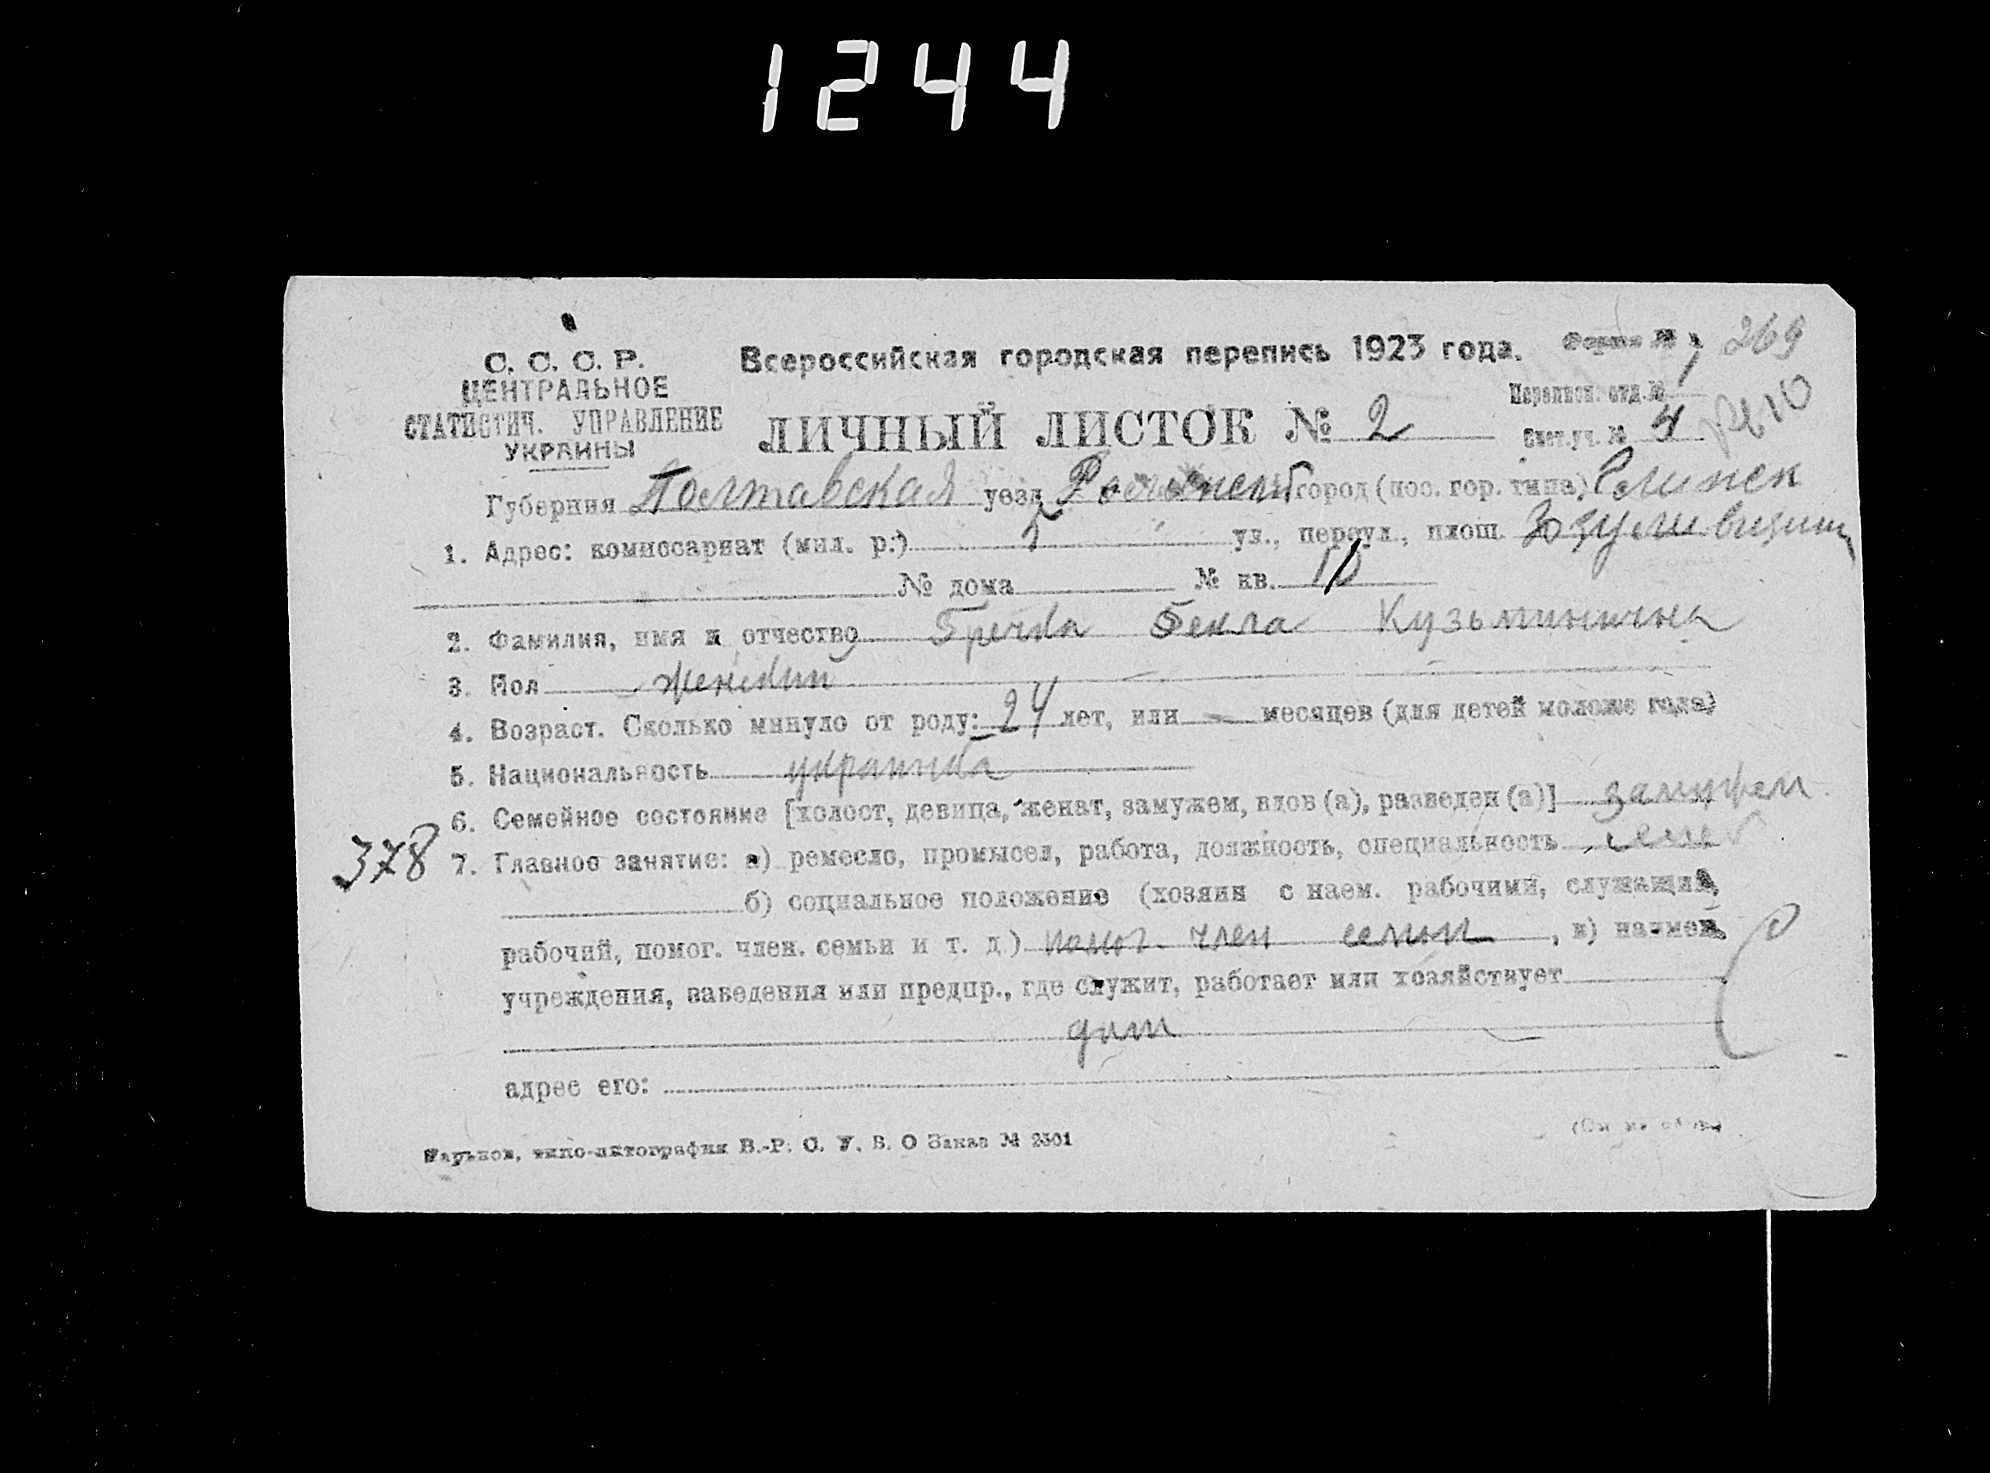 1244
С. С. С. Р.
ЦЕНТРАЛЬНОЕ
СТАТИСТИЧ. УПРАВЛЕНИЕ
УКРАИНЫ
Всероссийская городская перепись 1923 года.
Форма № 1
269
ЛИЧНЫЙ ЛИСТОК № 2
Переписн. отд. №
Счет. уч. № 4
Губерния Полтавская уезд Роменский город (пос. гор. типа) Глинск
1. Адрес: комиссариат (мил. р.) ул., переул., площ.
№ дома № кв. 10
2. Фамилия, имя и отчество Гречка Текла Кузьминична
3. Пол женский
4. Возраст. Сколько минуло от роду: 24 лет, или — месяцев (для детей моложе года)
5. Национальность украинка
6. Семейное состояние [холост, девица, женат, замужем, вдов (а), разведен (а)] замужем
378
7. Главное занятие: а) ремесло, промысел, работа, должность, специальность
б) социальное положение (хозяин с наем. рабочими, служащий,
рабочий, помог. член. семьи и т. д.) помог. член семьи , в) наимен.
учреждения, заведения или предпр., где служит, работает или хозяйствует
адрес его:
Харьков, типо-литография В.-Р. С. У. В. О Заказ № 2301